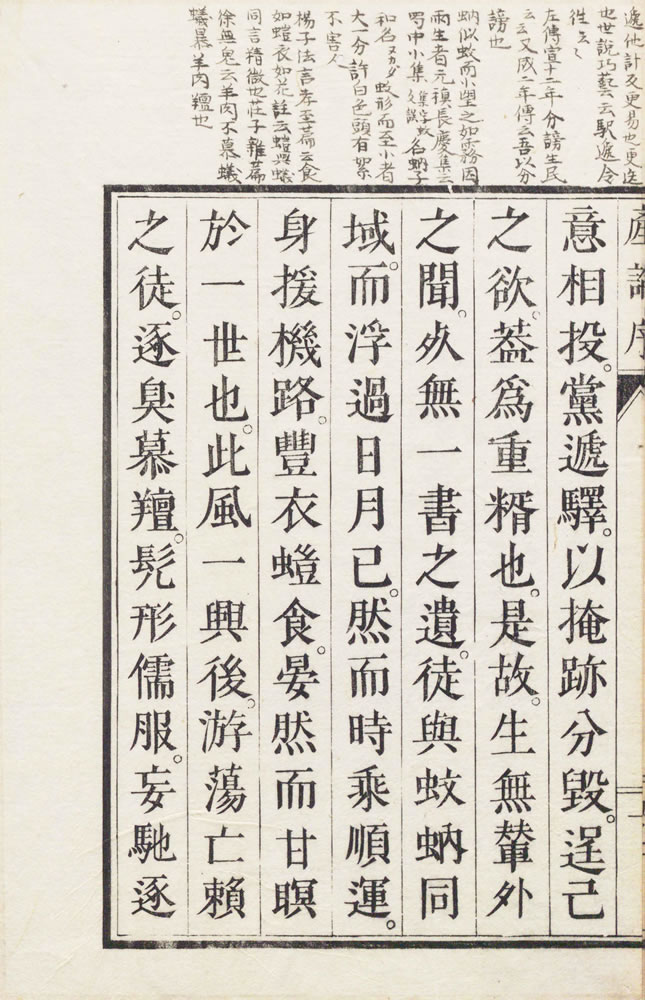 遞他計反更易也更迭
也世説巧藝云馹遞令
徃云々
左傳宣十二年分謗生民
云云又成二年傳云吾以分
謗也
蚋似蚊而小望之如霧因
雨生者元稹長慶集云
蜀中小集名蚋子
和名ヌカガ蚊形而至小者
大一分許白色頭有絮
不害人
楊子法言孝至篇云食
如螘衣如花註云螘與蟻
同言精微也莊子雜篇
徐無鬼云羊肉不慕蟻
蟻慕羊肉羶也
產論序
意相投。黨遞驛。以掩跡分毀。逞己
之欲。葢爲重糈也。是故。生無輦外
之聞。死無一書之遺。徒與蚊蚋同
域。而浮過日月已。然而時乘順運。
身援機路。豐衣螘食。晏然而甘暝
於一世也。此風一興後。游蕩亡賴
之徒。逐臭慕羶。髡形儒服。妄馳逐